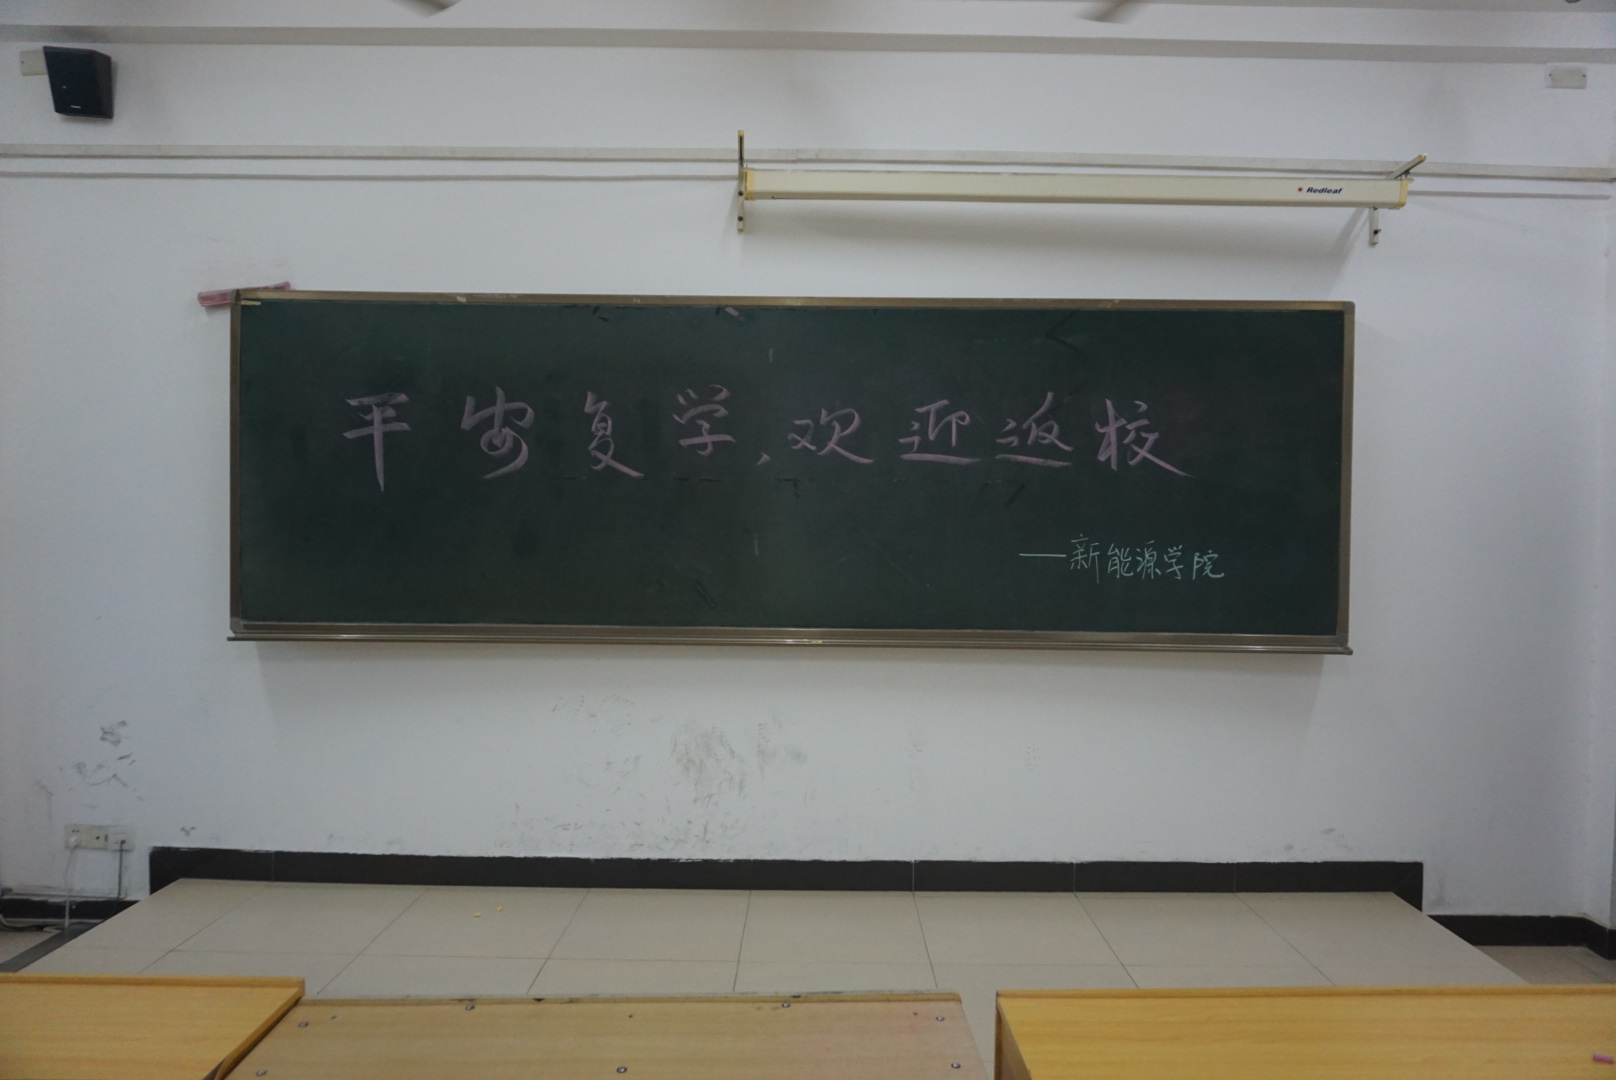 Redleaf
平安复学，欢迎返校
—新能源学院